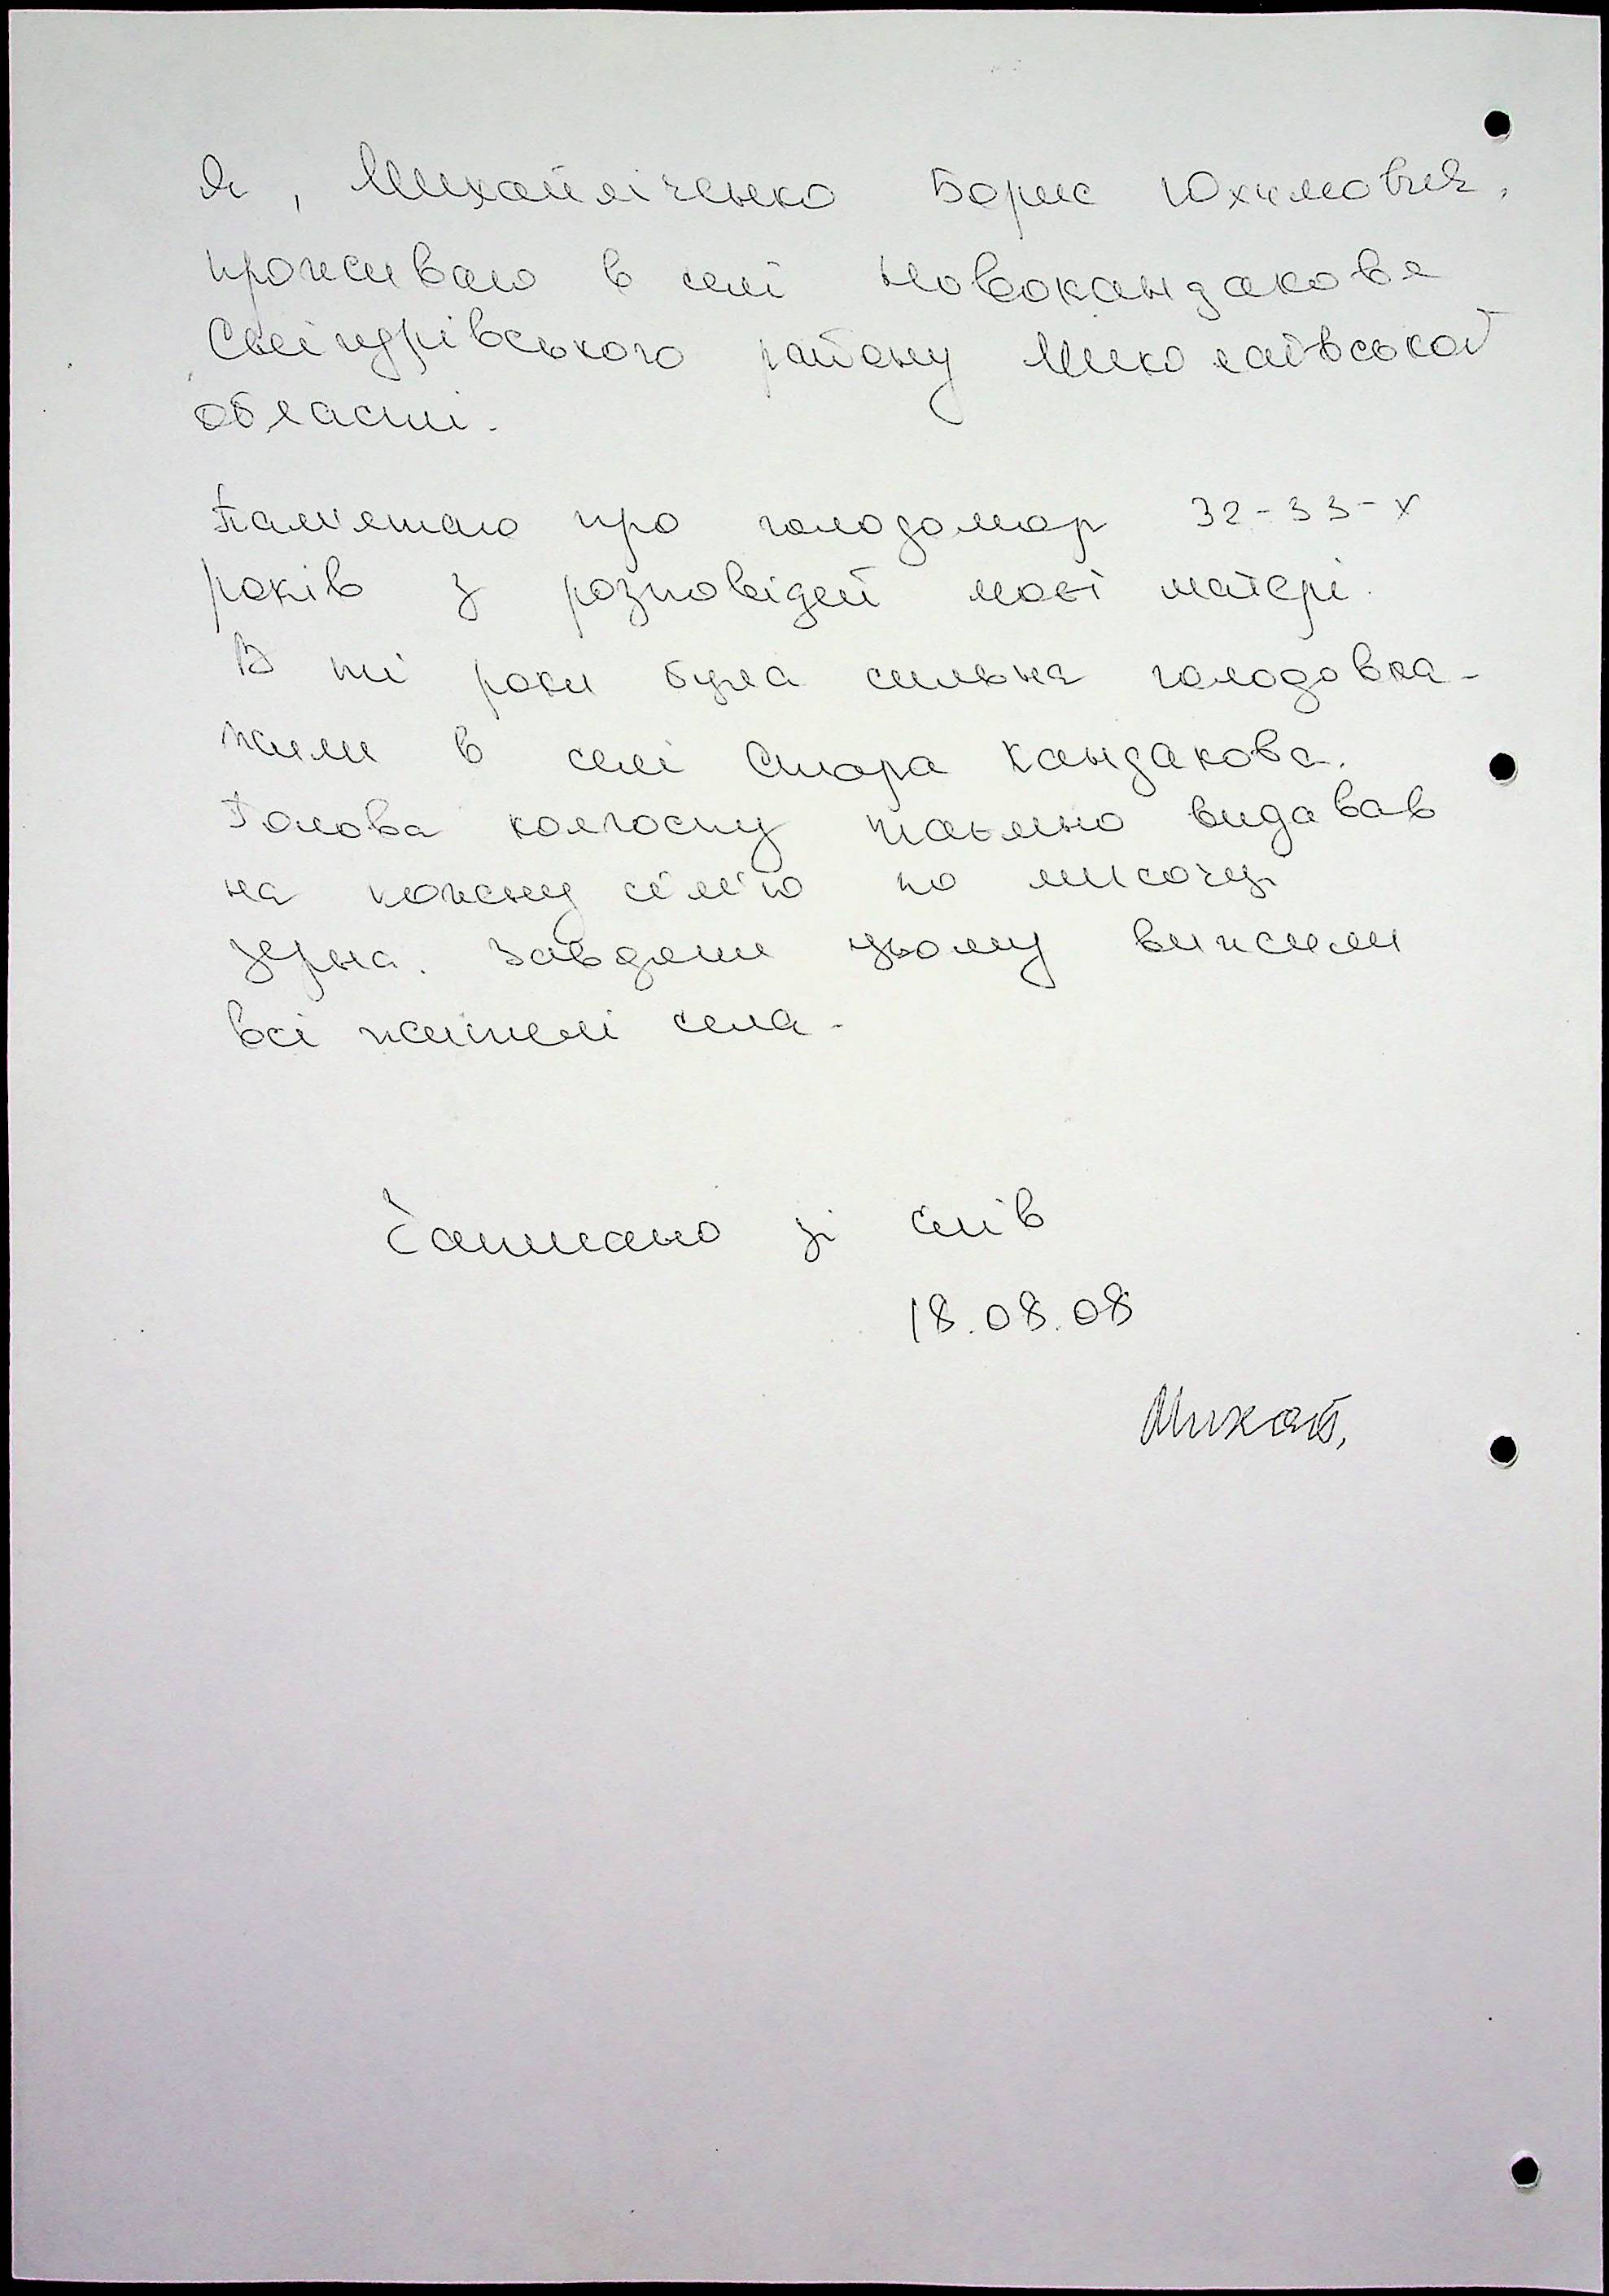 Я, Михайліченко Борис Юхимович,
проживаю в селі Новокандакове
Снігурівського району Миколаївської
області.
Пам'ятаю про голодомор 32-33-х
років з розповідей моєї матері.
В ті роки була сильна голодовка.
Жили в селі Стара Кандакова.
Голова колгоспу таємно видавав
на кожну сім'ю по мисочці
зерна. Завдяки цьому вижили
всі жителі села.
Записано зі слів
18.08.08
Михай,